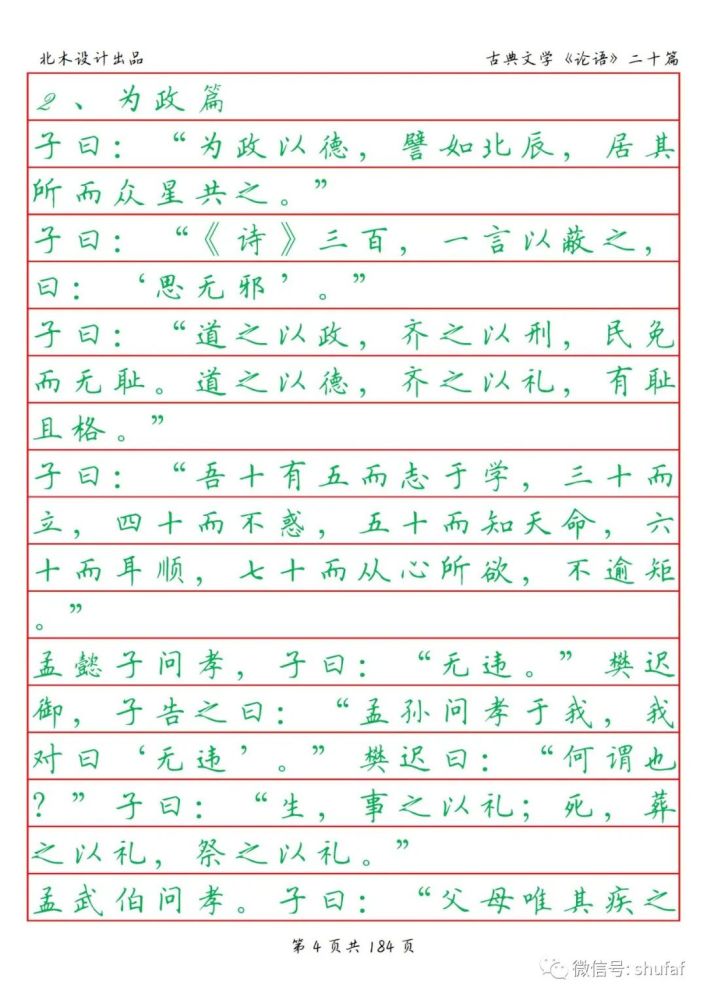 北木设计出品 古典文学《论语》二十篇
2、为政篇
子曰：“为政以德，譬如北辰，居其
所而众星共之。”
子曰：“《诗》三百，一言以蔽之，
曰：‘思无邪’。”
子曰：“道之以政，齐之以刑，民免
而无耻。道之以德，齐之以礼，有耻
且格。”
子曰：“吾十有五而志于学，三十而
立，四十而不惑，五十而知天命，六
十而耳顺，七十而从心所欲，不逾矩
。”
孟懿子问孝，子曰：“无违。”樊迟
御，子告之曰：“孟孙问孝于我，我
对曰‘无违’。”樊迟曰：“何谓也
？”子曰：“生，事之以礼；死，葬
之以礼，祭之以礼。”
孟武伯问孝。子曰：“父母唯其疾之
第 4 页共 184 页
微信号: shufaf